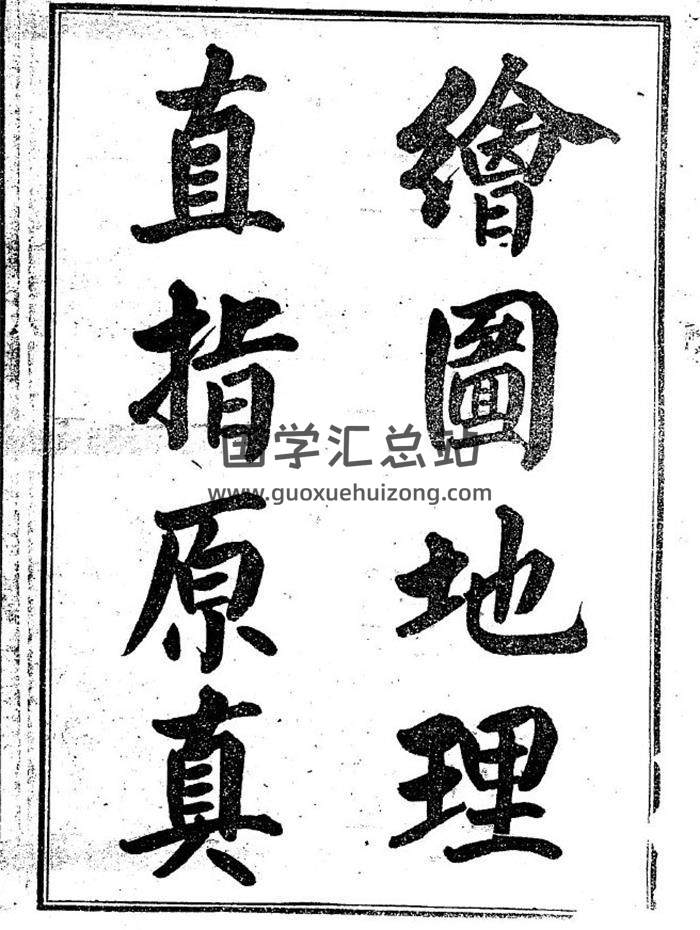 繪圖地理
直指原真
国学汇总站
www.guoxuehuizong.com